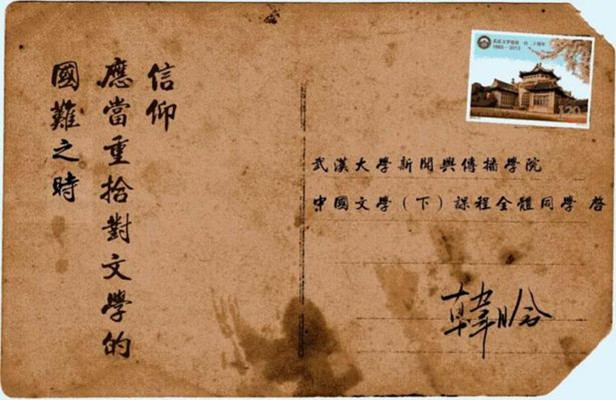 國難之時
應當重拾對文學的
信仰
1893-2013
武漢大學新聞與傳播學院
中國文學（下）課程全體同學 啓
韓晗